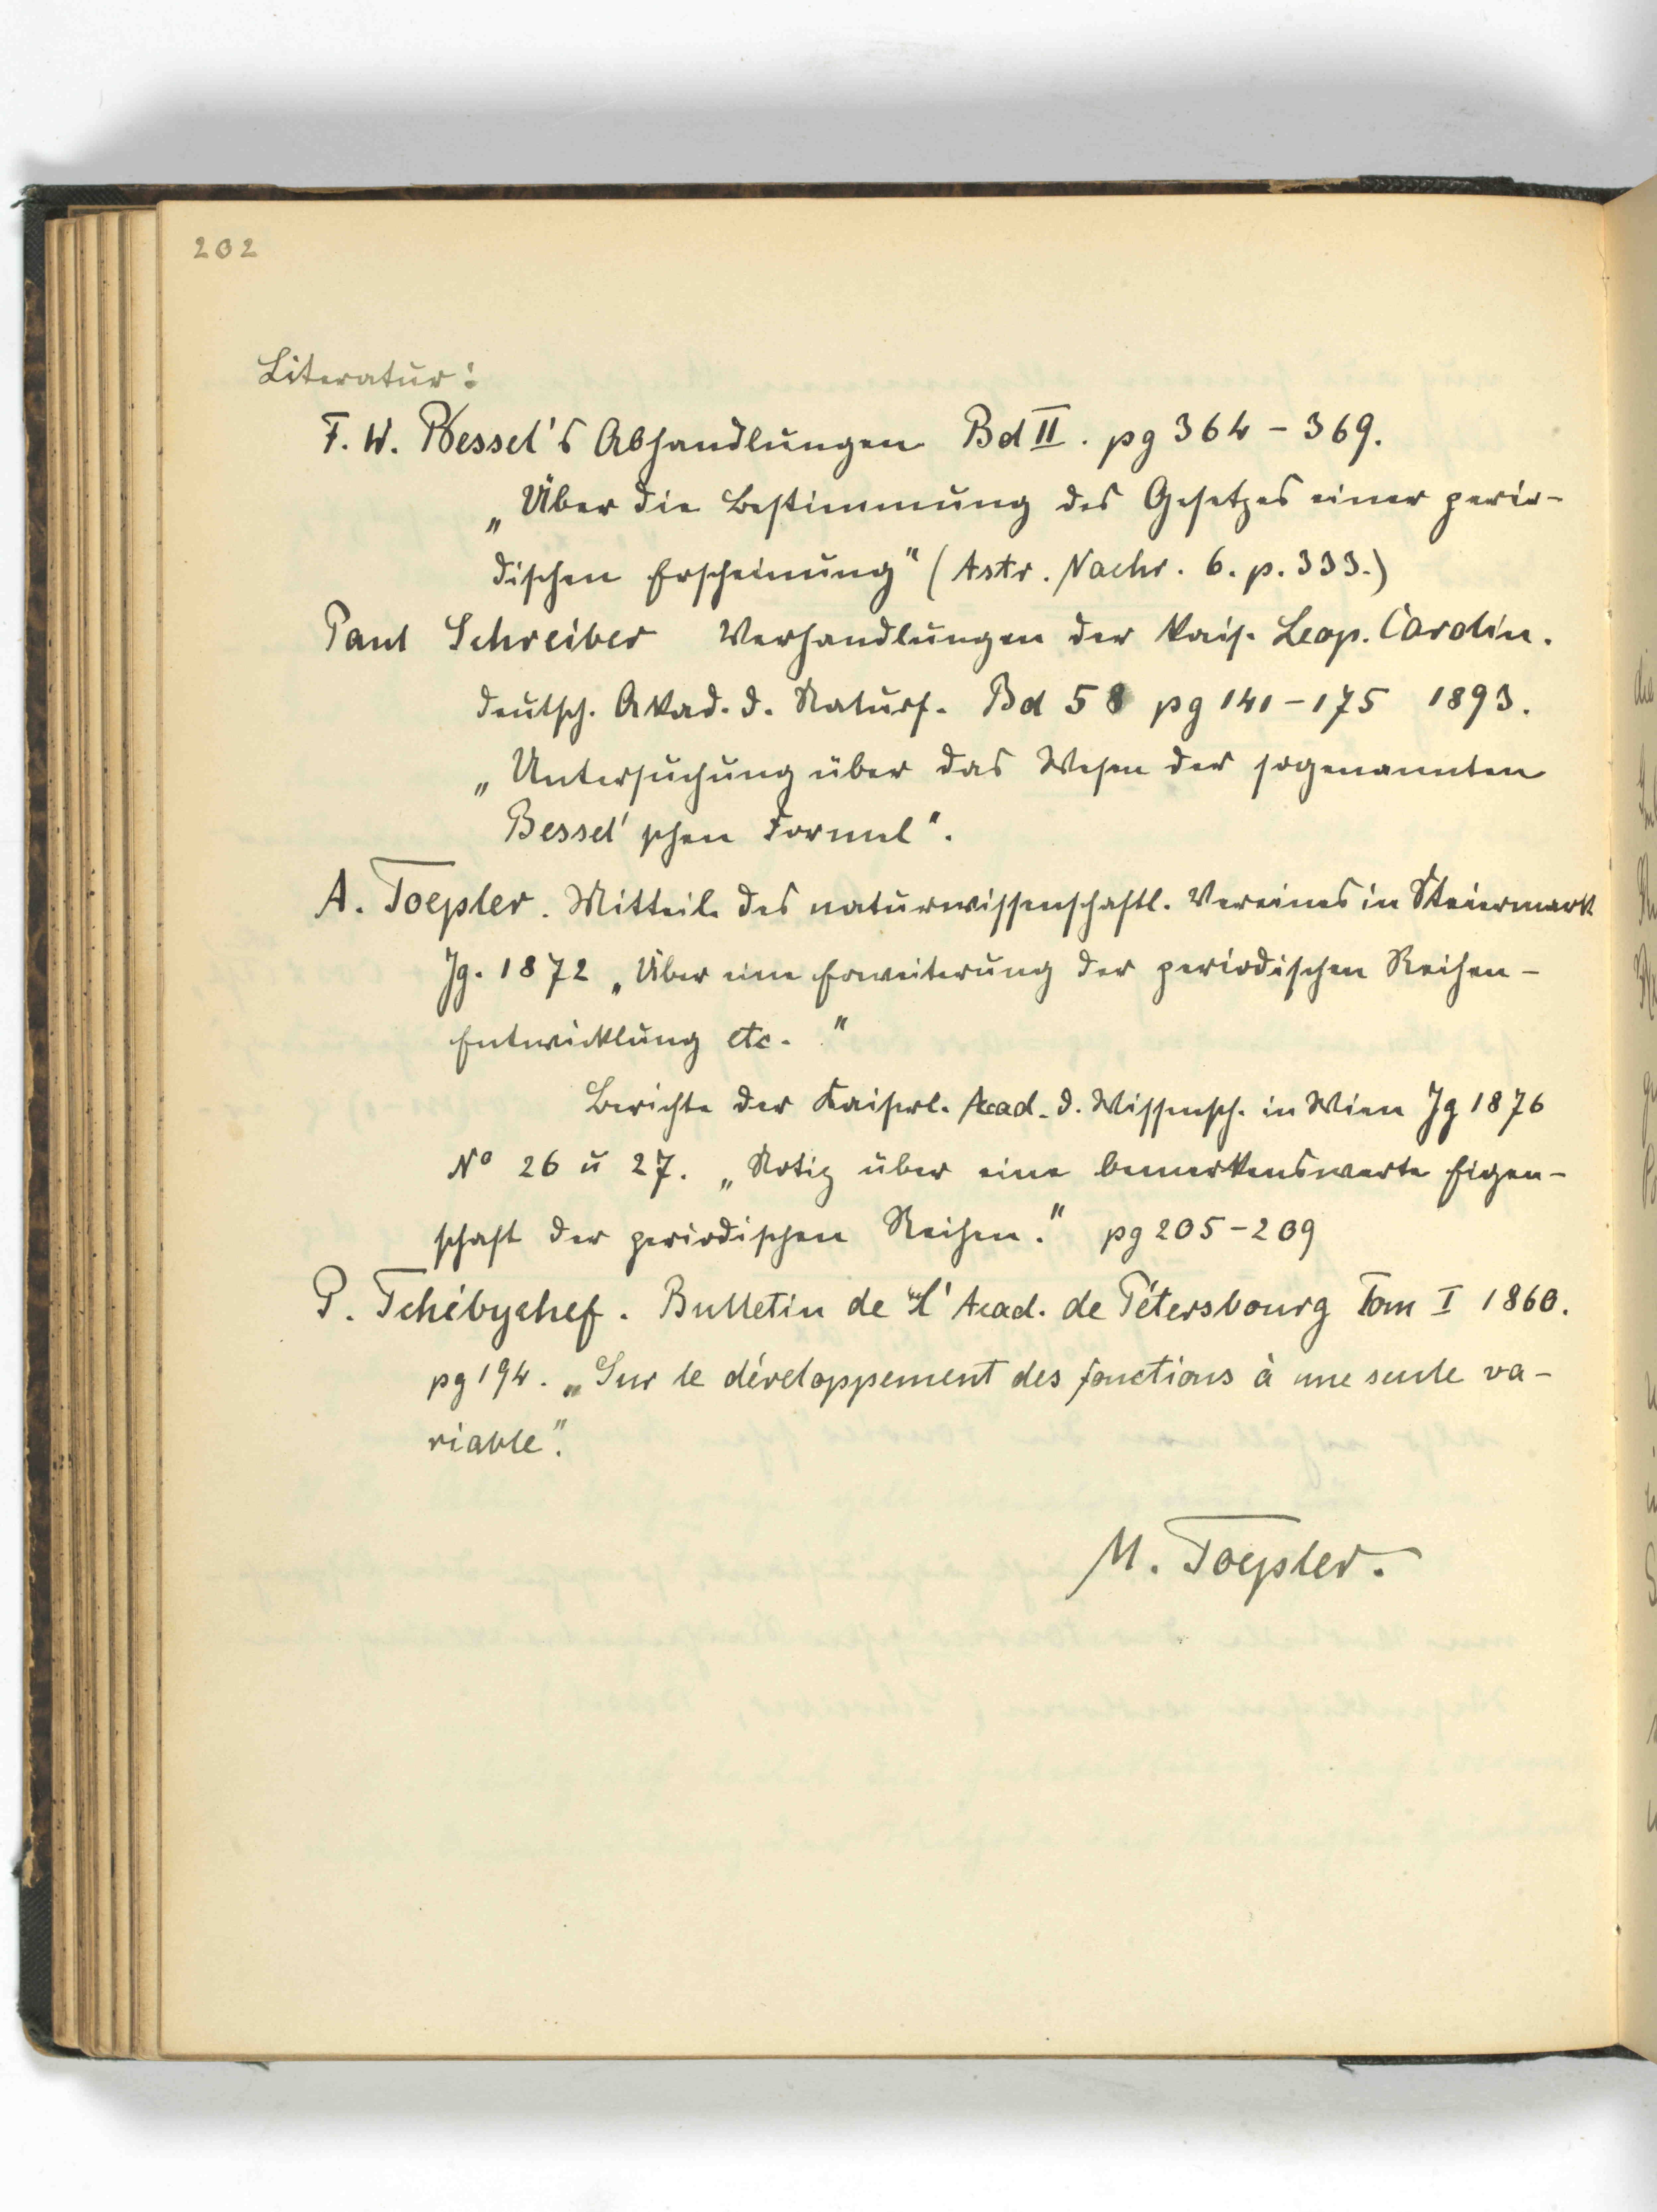 202
Literatur:
F. W. Bessel's Abhandlungen Bd II. pg 364 - 369.
„Über die Bestimmung des Gesetzes einer perio-
dischen Erscheinung" (Astr. Nachr. 6. p. 333.)
Paul Schreiber Verhandlungen der Kais. Leop. Carolin.
deutsch. Akad. d. Naturf. Bd 58 pg 141-175 1893.
„Untersuchung über das Wesen der sogenannten
Bessel'schen Formel".
A. Toepler. Mitteil. des naturwissenschaftl. Vereines in Steiermark
Jg. 1872 „Über eine Erweiterung der periodischen Reihen-
Entwicklung etc."
Berichte der Kaiserl. Acad. d. Wissensch. in Wien Jg 1876
No 26 u 27. „Notiz über eine bemerkenswerte Eigen-
schaft der periodischen Reihen." pg 205-209
P. Tchébychef. Bulletin de l'Acad. de Pétersbourg Tom I 1860.
pg 194. „Sur le développement des fonctions à une seule va-
riable".
M. Toepler.